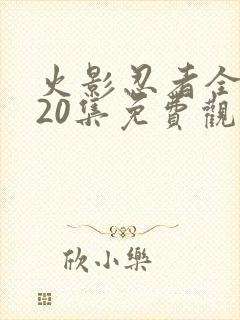 火影忍者全
20集免費觀
欣小樂